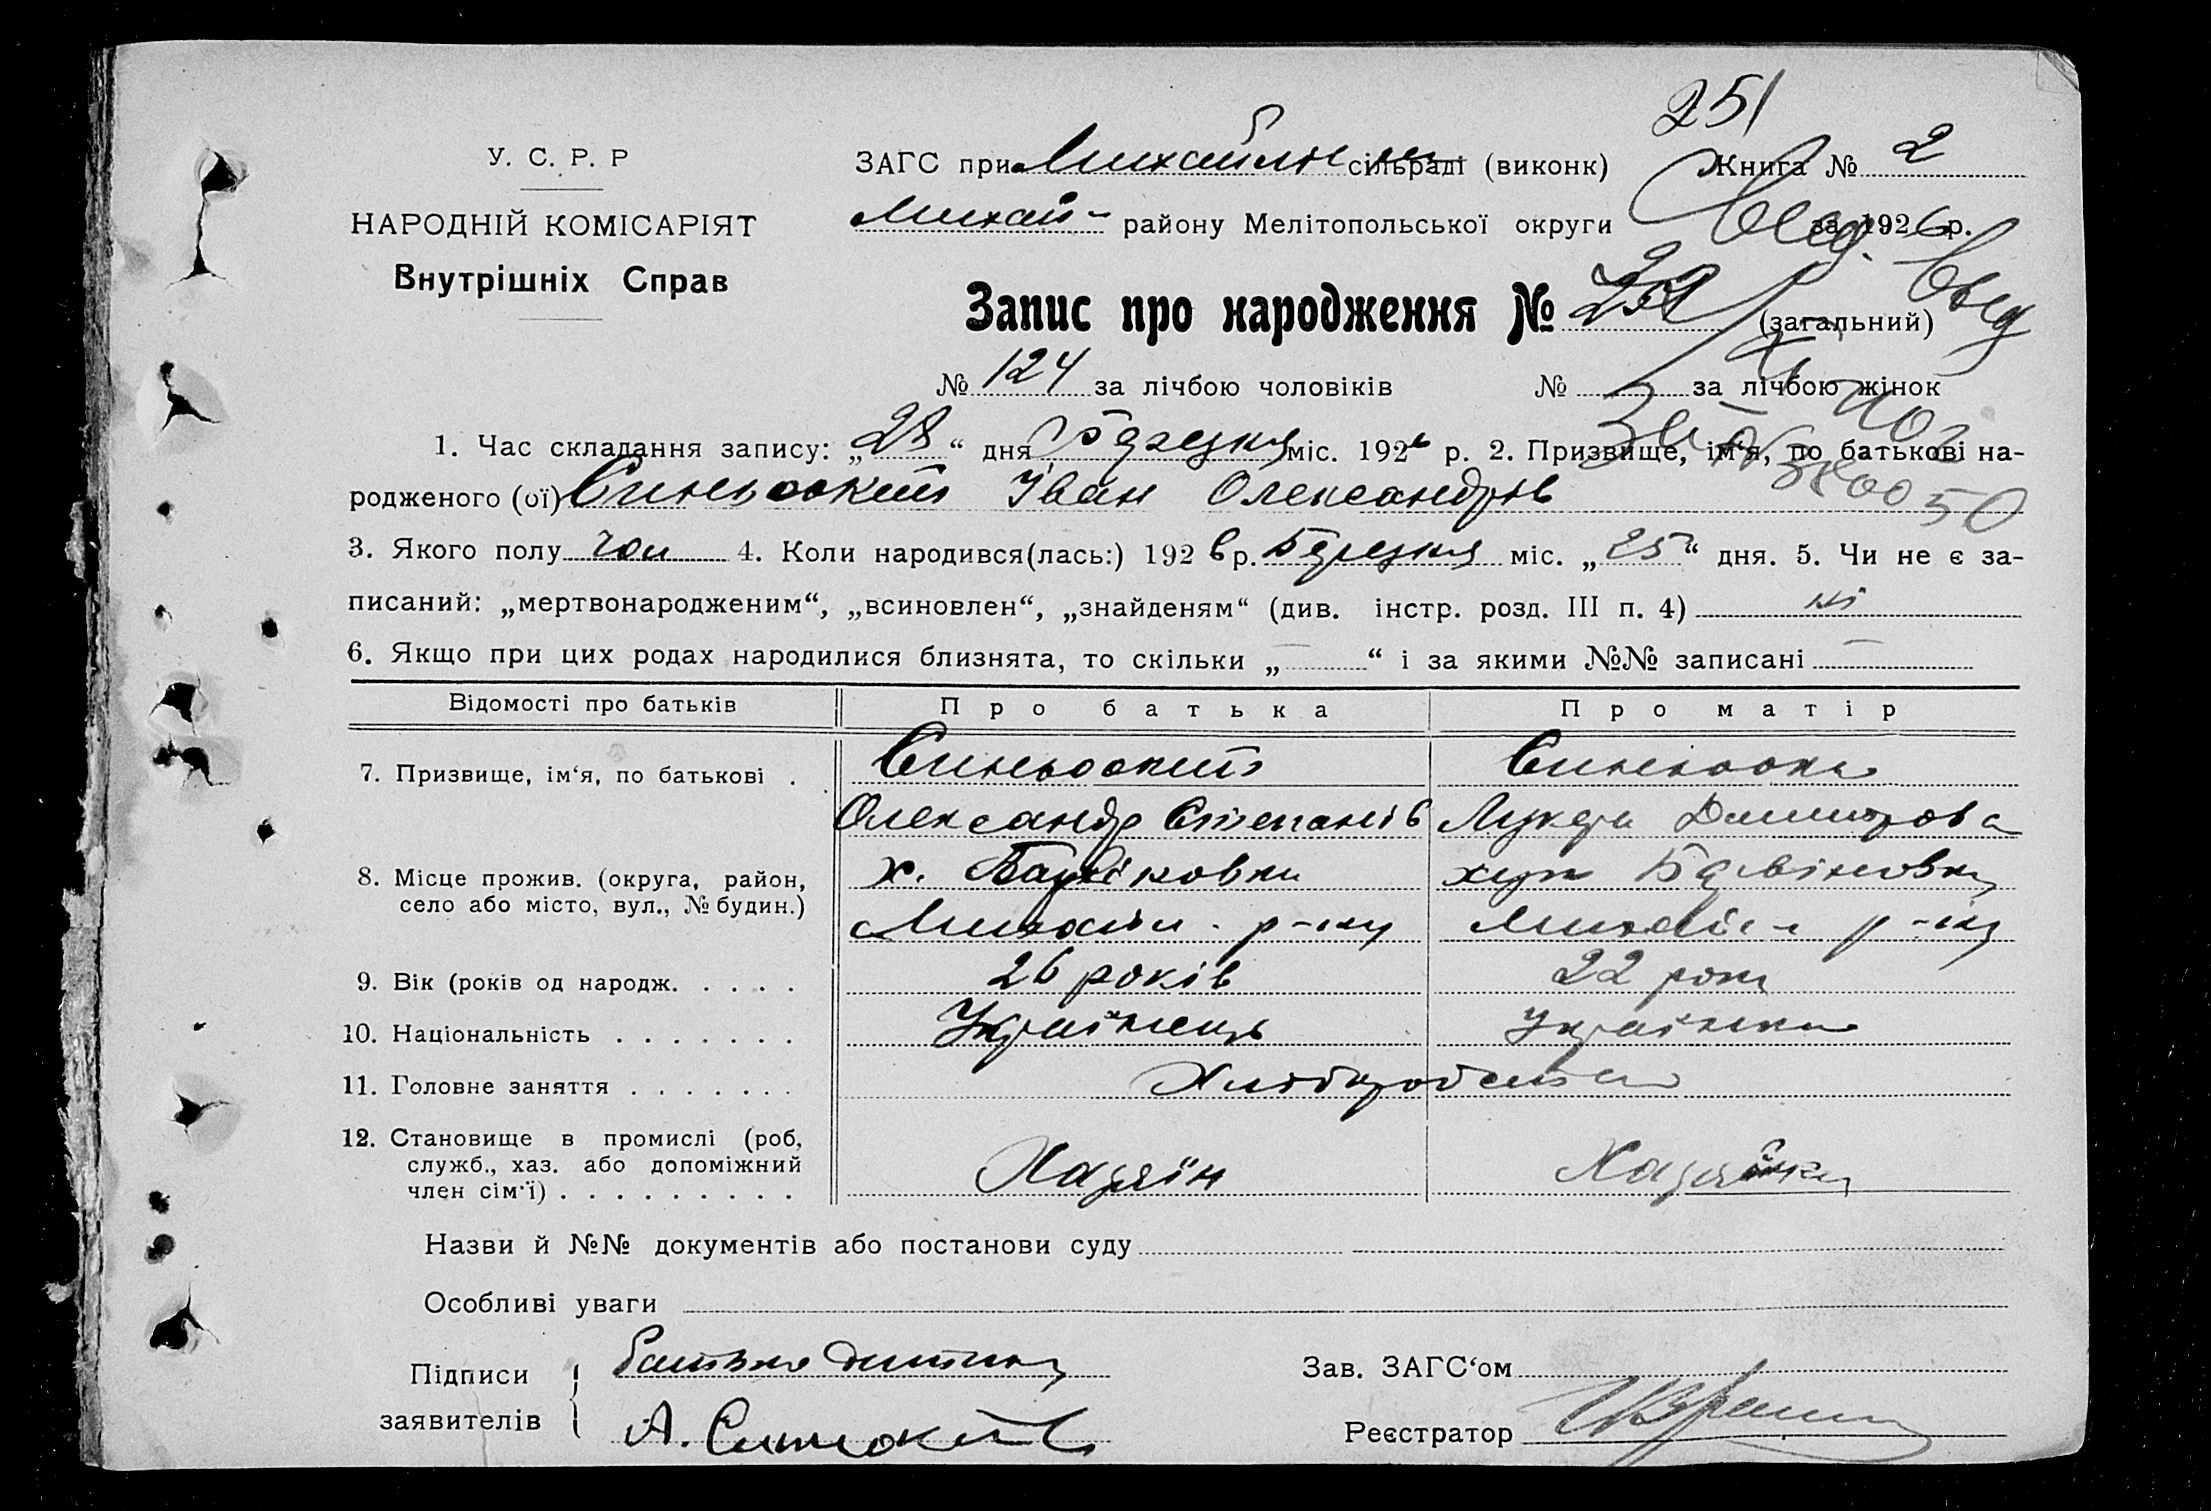 251
У. С. Р. Р
НАРОДНІЙ КОМІСАРІЯТ
Внутрішніх Справ
ЗАГС при сільраді (виконк) Книга № 2
Михай- району Мелітопольської округи за 1926 р.
Запис про народження № (загальний)
№ 124 за лічбою чоловіків № за лічбою жінок
1. Час складання запису: „28“ дня Березня міс. 1926 р. 2. Призвище, ім‘я, по батькові на-
родженого (ої) Синьоокий Іван Олександрів
3. Якого полу чол 4. Коли народився(лась:) 1926 р. Березня міс. „25“ дня. 5. Чи не є за-
писаний: „мертвонародженим“, „всиновлен“, „знайденям“ (див. інстр. розд. III п. 4) ні
6. Якщо при цих родах народилися близнята, то скільки „—“ і за якими №№ записані —
Відомості про батьків Про батька Про матір
7. Призвище, ім‘я, по батькові . Синьоокий Синьоока
Олександр Степанів Лукерія Дмитрова
8. Місце прожив. (округа, район, село або місто, вул., № будин.) х. хут
Михайл. р-ну Михайл- р-ну
9. Вік (років од народж. . . . . 26 років 22 роки
10. Національність . . . . . . . Українець Українка
11. Головне заняття . . . . . . . Хліборобство
12. Становище в промислі (роб,
служб., хаз. або допоміжний
член сім‘ї) . . . . . . . . . Хазяїн Хазяйка
Назви й №№ документів або постанови суду
Особливі уваги
Підписи заявителів
батько дитини
А. Синьокий
Зав. ЗАГС‘ом
Реєстратор